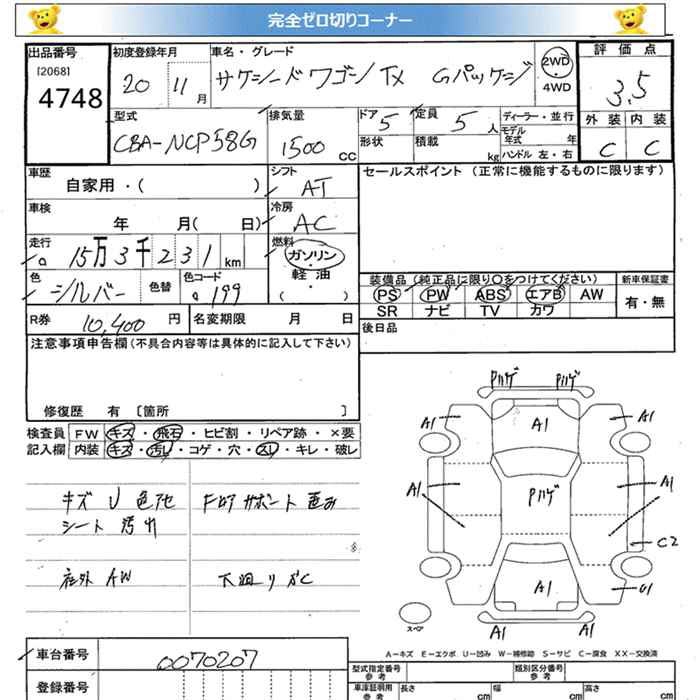 完全ゼロ切りコーナー
出品番号 初度登録年月 車名・グレード 2WD 評価点
[2068] 20 11月 サクシードワゴン TX Gパッケージ 4WD 3.5
4748
型式 排気量 ドア 定員 ディーラー・並行 外装 内装
CBA-NCP58G 1500cc 5 5人 モデル年式 年 C C
形状 積載 kg ハンドル 左・右
車歴 シフト セールスポイント (正常に機能するものに限ります)
自家用・( ) AT
車検 冷房
年 月( 日) AC
走行 燃料
15万3千231km ガソリン
軽油
( ・ )
色 色替 色コード 装備品 (純正品に限り○をつけてください) 新車保証書
シルバー 199 PS PW ABS エアB AW 有・無
SR ナビ TV カワ
R券 10,400円 名変期限 月 日 後日品
注意事項申告欄 (不具合内容等は具体的に記入して下さい)
修復歴 有 [箇所 ]
検査員 FW キズ・飛石・ヒビ割・リペア跡・×要
記入欄 内装 キズ・汚レ・コゲ・穴・スレ・キレ・破レ
キズ U 色アセ
シート 汚れ
社外 AW
下廻り サC
Pハゲ Pハゲ
A1 A1 A1
A1 Pハゲ A1
C2
A1
スペア A1 A1
A-キズ E-エクボ U-凹み W-補修跡 S-サビ C-腐食 XX-交換済
車台番号 0070207
登録番号
型式指定番号 参考 類別区分番号 参考
車庫証明用 参考 長さ cm 幅 cm 高さ cm